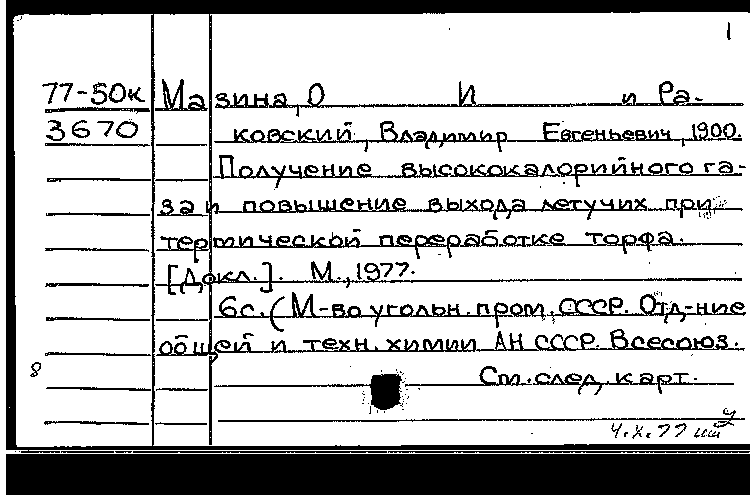 1
77-50к Мазина, О И и Ра-
3670 ковский, Владимир Евгеньевич, 1900.
Получение высококалорийного га-
за и повышение выхода летучих при
термической переработке торфа.
[Докл.]. М., 1977.
6с. (М-во угольн. пром. СССР. Отд-ние
общей и техн. химии АН СССР. Всесоюз.
8
См. след. карт.
4.X.77